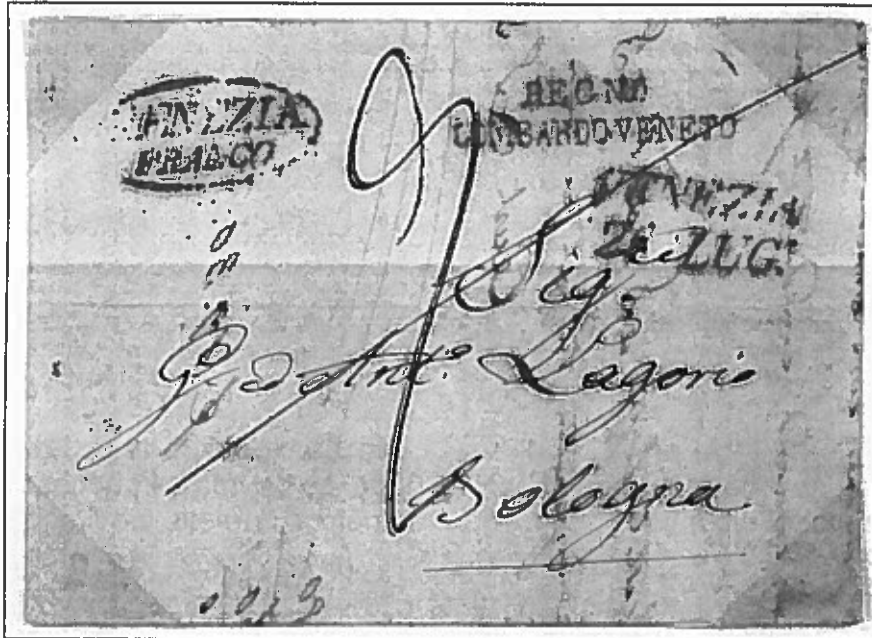 VENEZIA
FRANCO
REGNO
LOMBARDO-VENETO
VENEZIA
LUG.
Sig.
Gio Ant.º Lagorio
Bologna